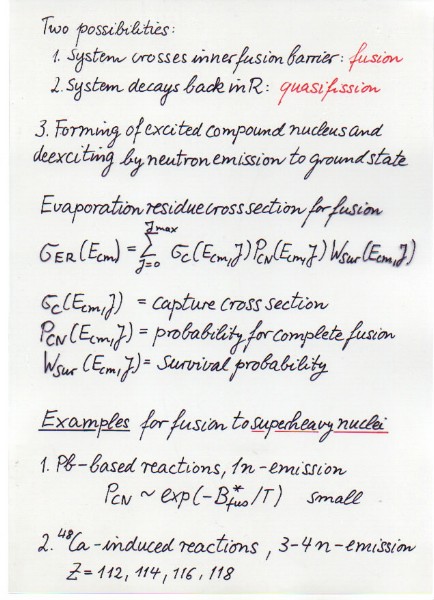 Two possibilities:
1. System crosses inner fusion barrier: fusion
2. System decays back in R: quasifission
3. Forming of excited compound nucleus and
deexciting by neutron emission to ground state
Evaporation residue cross section for fusion
σ_ER(E_cm) = Σ_{J=0}^{J_max} σ_c(E_cm, J) P_CN(E_cm, J) W_sur(E_cm, J)
σ_c(E_cm, J) = capture cross section
P_CN(E_cm, J) = probability for complete fusion
W_sur(E_cm, J) = survival probability
Examples for fusion to superheavy nuclei
1. Pb-based reactions, 1n-emission
P_CN ~ exp(-B*_fus/T) small
2. ⁴⁸Ca-induced reactions, 3-4n-emission
Z = 112, 114, 116, 118